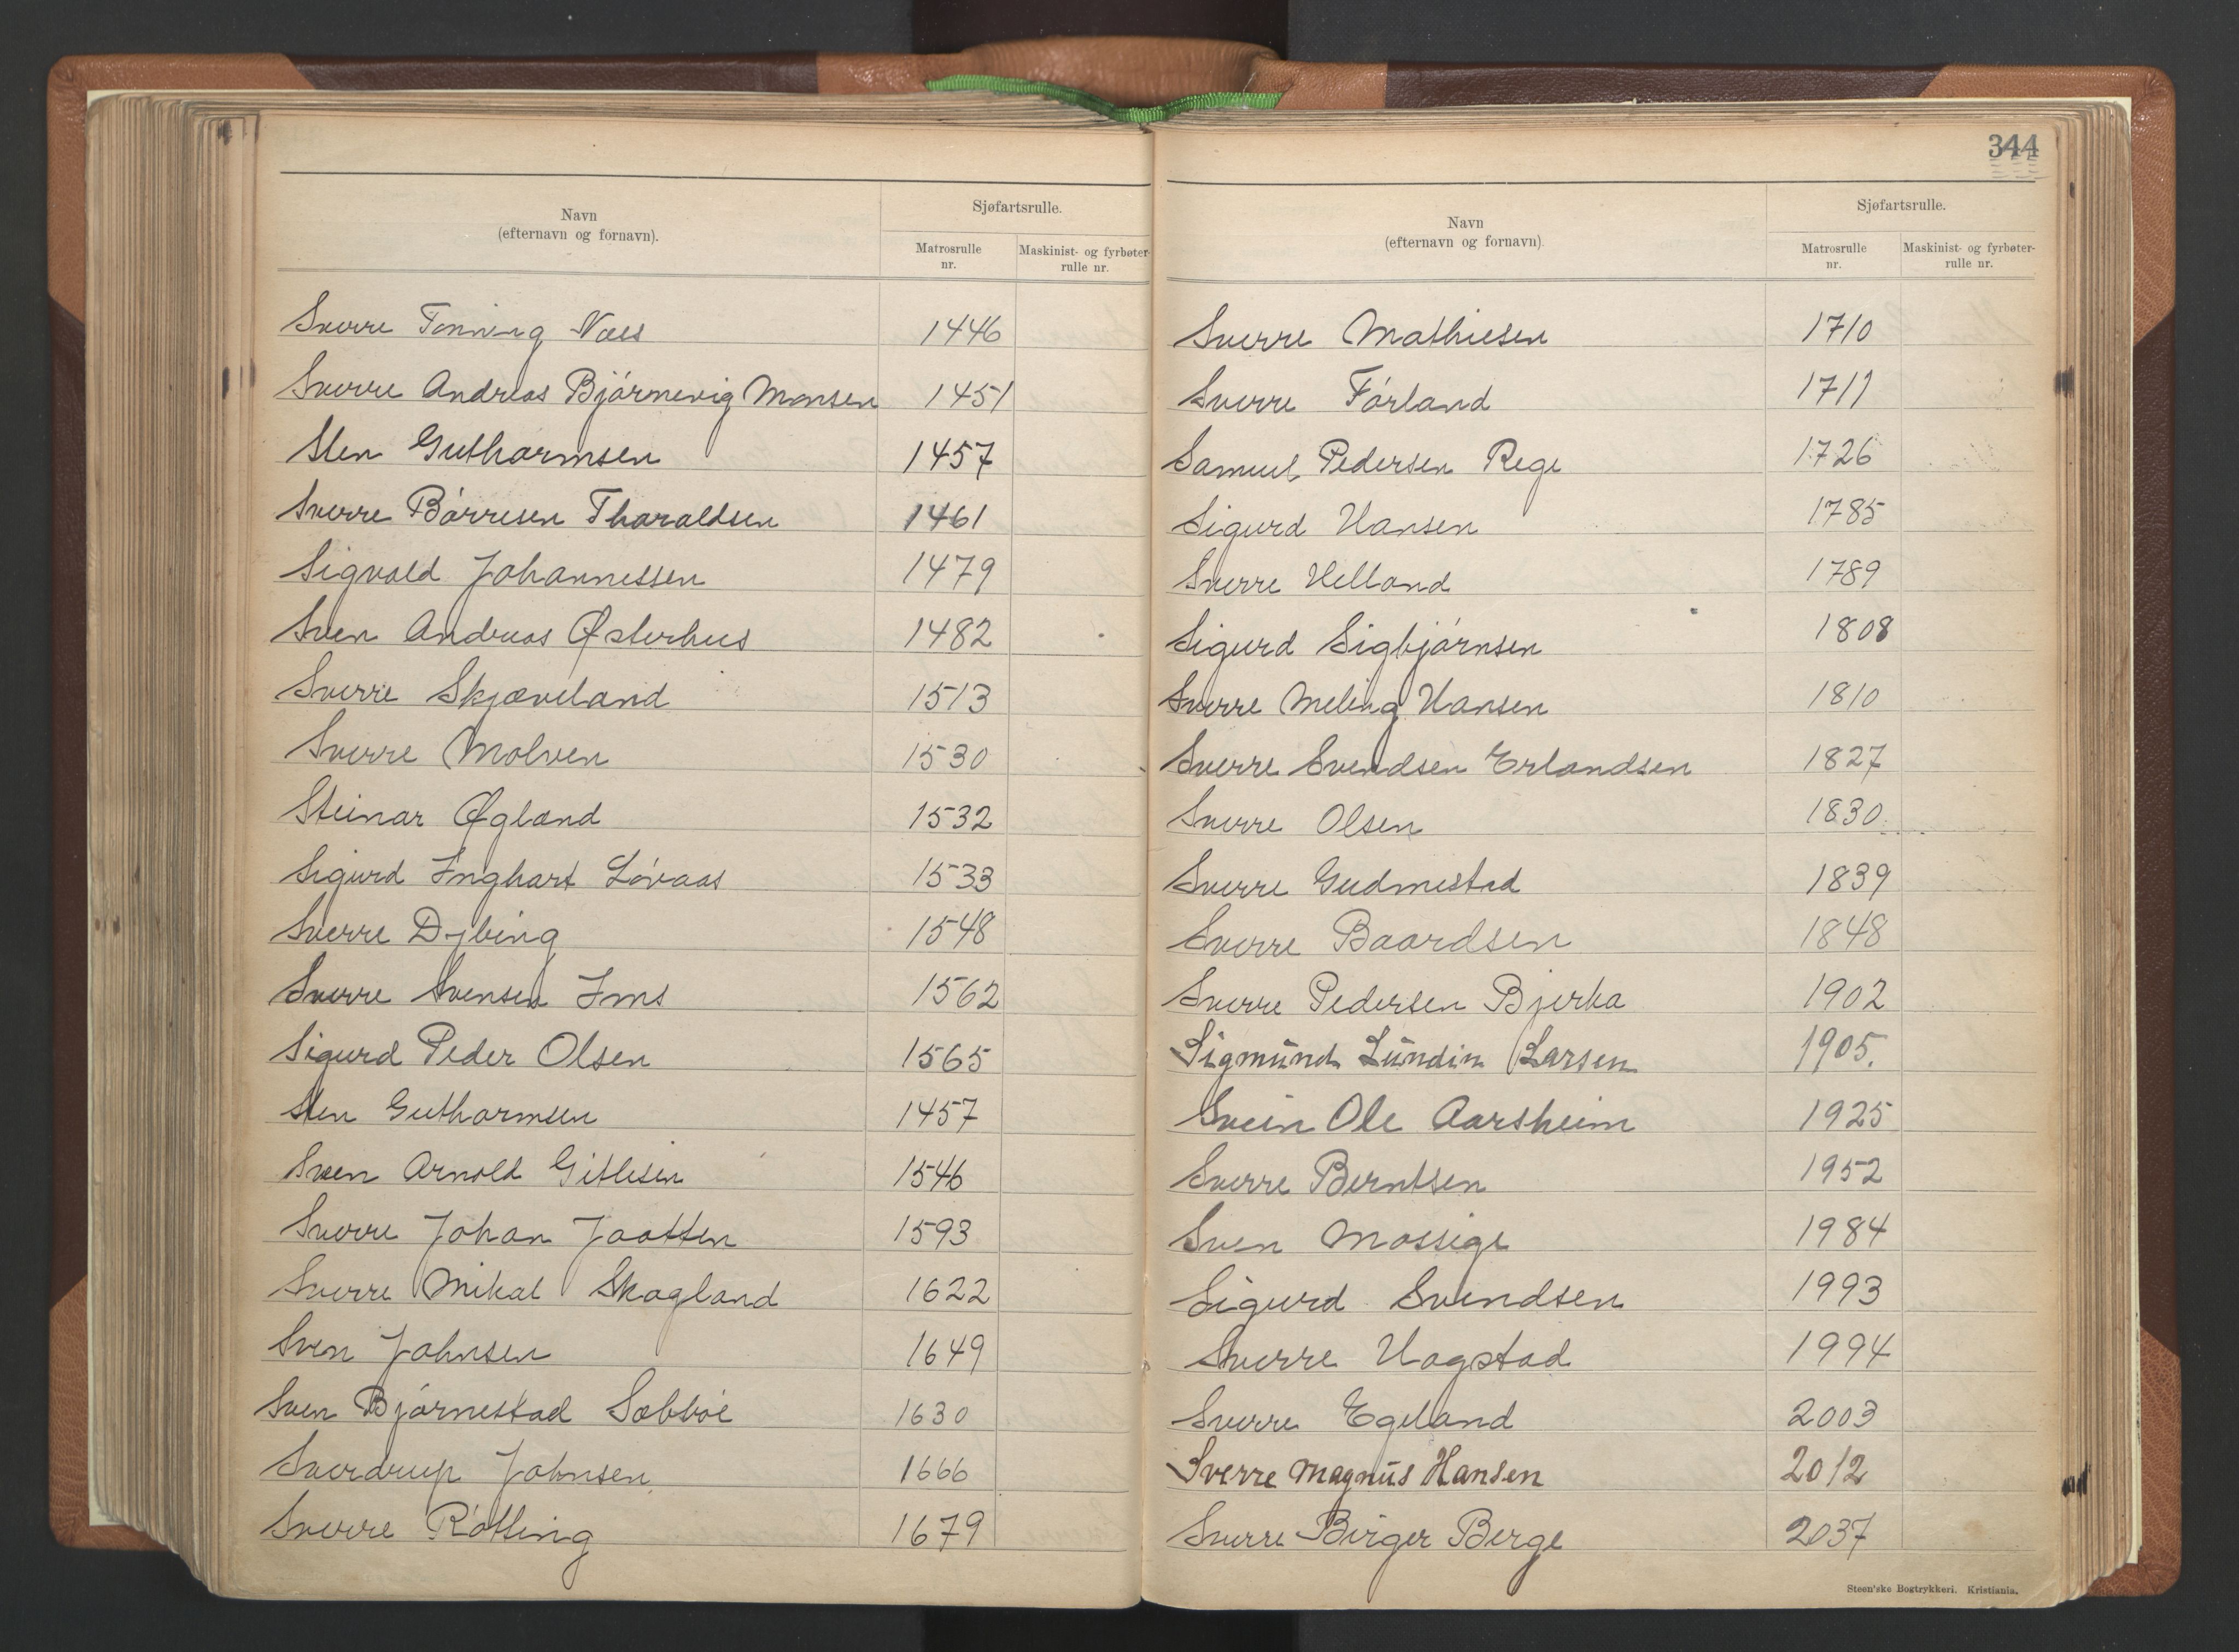 344
Navn
(efternavn og fornavn).
Sjøfartsrulle.
Matrosrulle
nr.
Maskinist- og fyrbøter-
rulle nr.
Sverre Tonning Næss 1446
Sverre Andreas Bjørnevig Monsen 1451
Sten Guthormsen 1457
Sverre Børresen Tharaldsen 1461
Sigvald Johannessen 1479
Sven Andreas Østerhus 1482
Sverre Skjæveland 1513
Sverre Molven 1530
Steinar Øgland 1532
Sigurd Inghart Løvaas 1533
Sverre Dybing 1548
Sverre Svensen Ims 1562
Sigurd Peder Olsen 1565
Sten Guthormsen 1457
Sven Arnold Gitlesen 1546
Sverre Johan Jaatten 1593
Sverre Mikal Skogland 1622
Sven Johnsen 1649
Sven Bjørnestad Sæbbøe 1630
Sverdrup Johnsen 1666
Sverre Røtting 1679
Navn
(efternavn og fornavn).
Sjøfartsrulle.
Matrosrulle
nr.
Maskinist- og fyrbøter-
rulle nr.
Sverre Mathiesen 1710
Sverre Førland 1711
Samuel Pedersen Rege 1726
Sigurd Hansen 1785
Sverre Helland 1789
Sigurd Sigbjørnsen 1808
Sverre Meling Hansen 1810
Sverre Svendsen Erlandsen 1827
Sverre Olsen 1830
Sverre Gudmestad 1839
Sverre Baardsen 1848
Sverre Pedersen Bjerka 1902
Sigmund Lundin Larsen 1905.
Svein Ole Aarsheim 1925
Sverre Berntsen 1952
Sven Mossige 1984
Sigurd Svendsen 1993
Sverre Hagstad 1994
Sverre Egeland 2003
Sverre Magnus Hansen 2012
Sverre Birger Berge 2037
Steen'ske Bogtrykkeri. Kristiania.